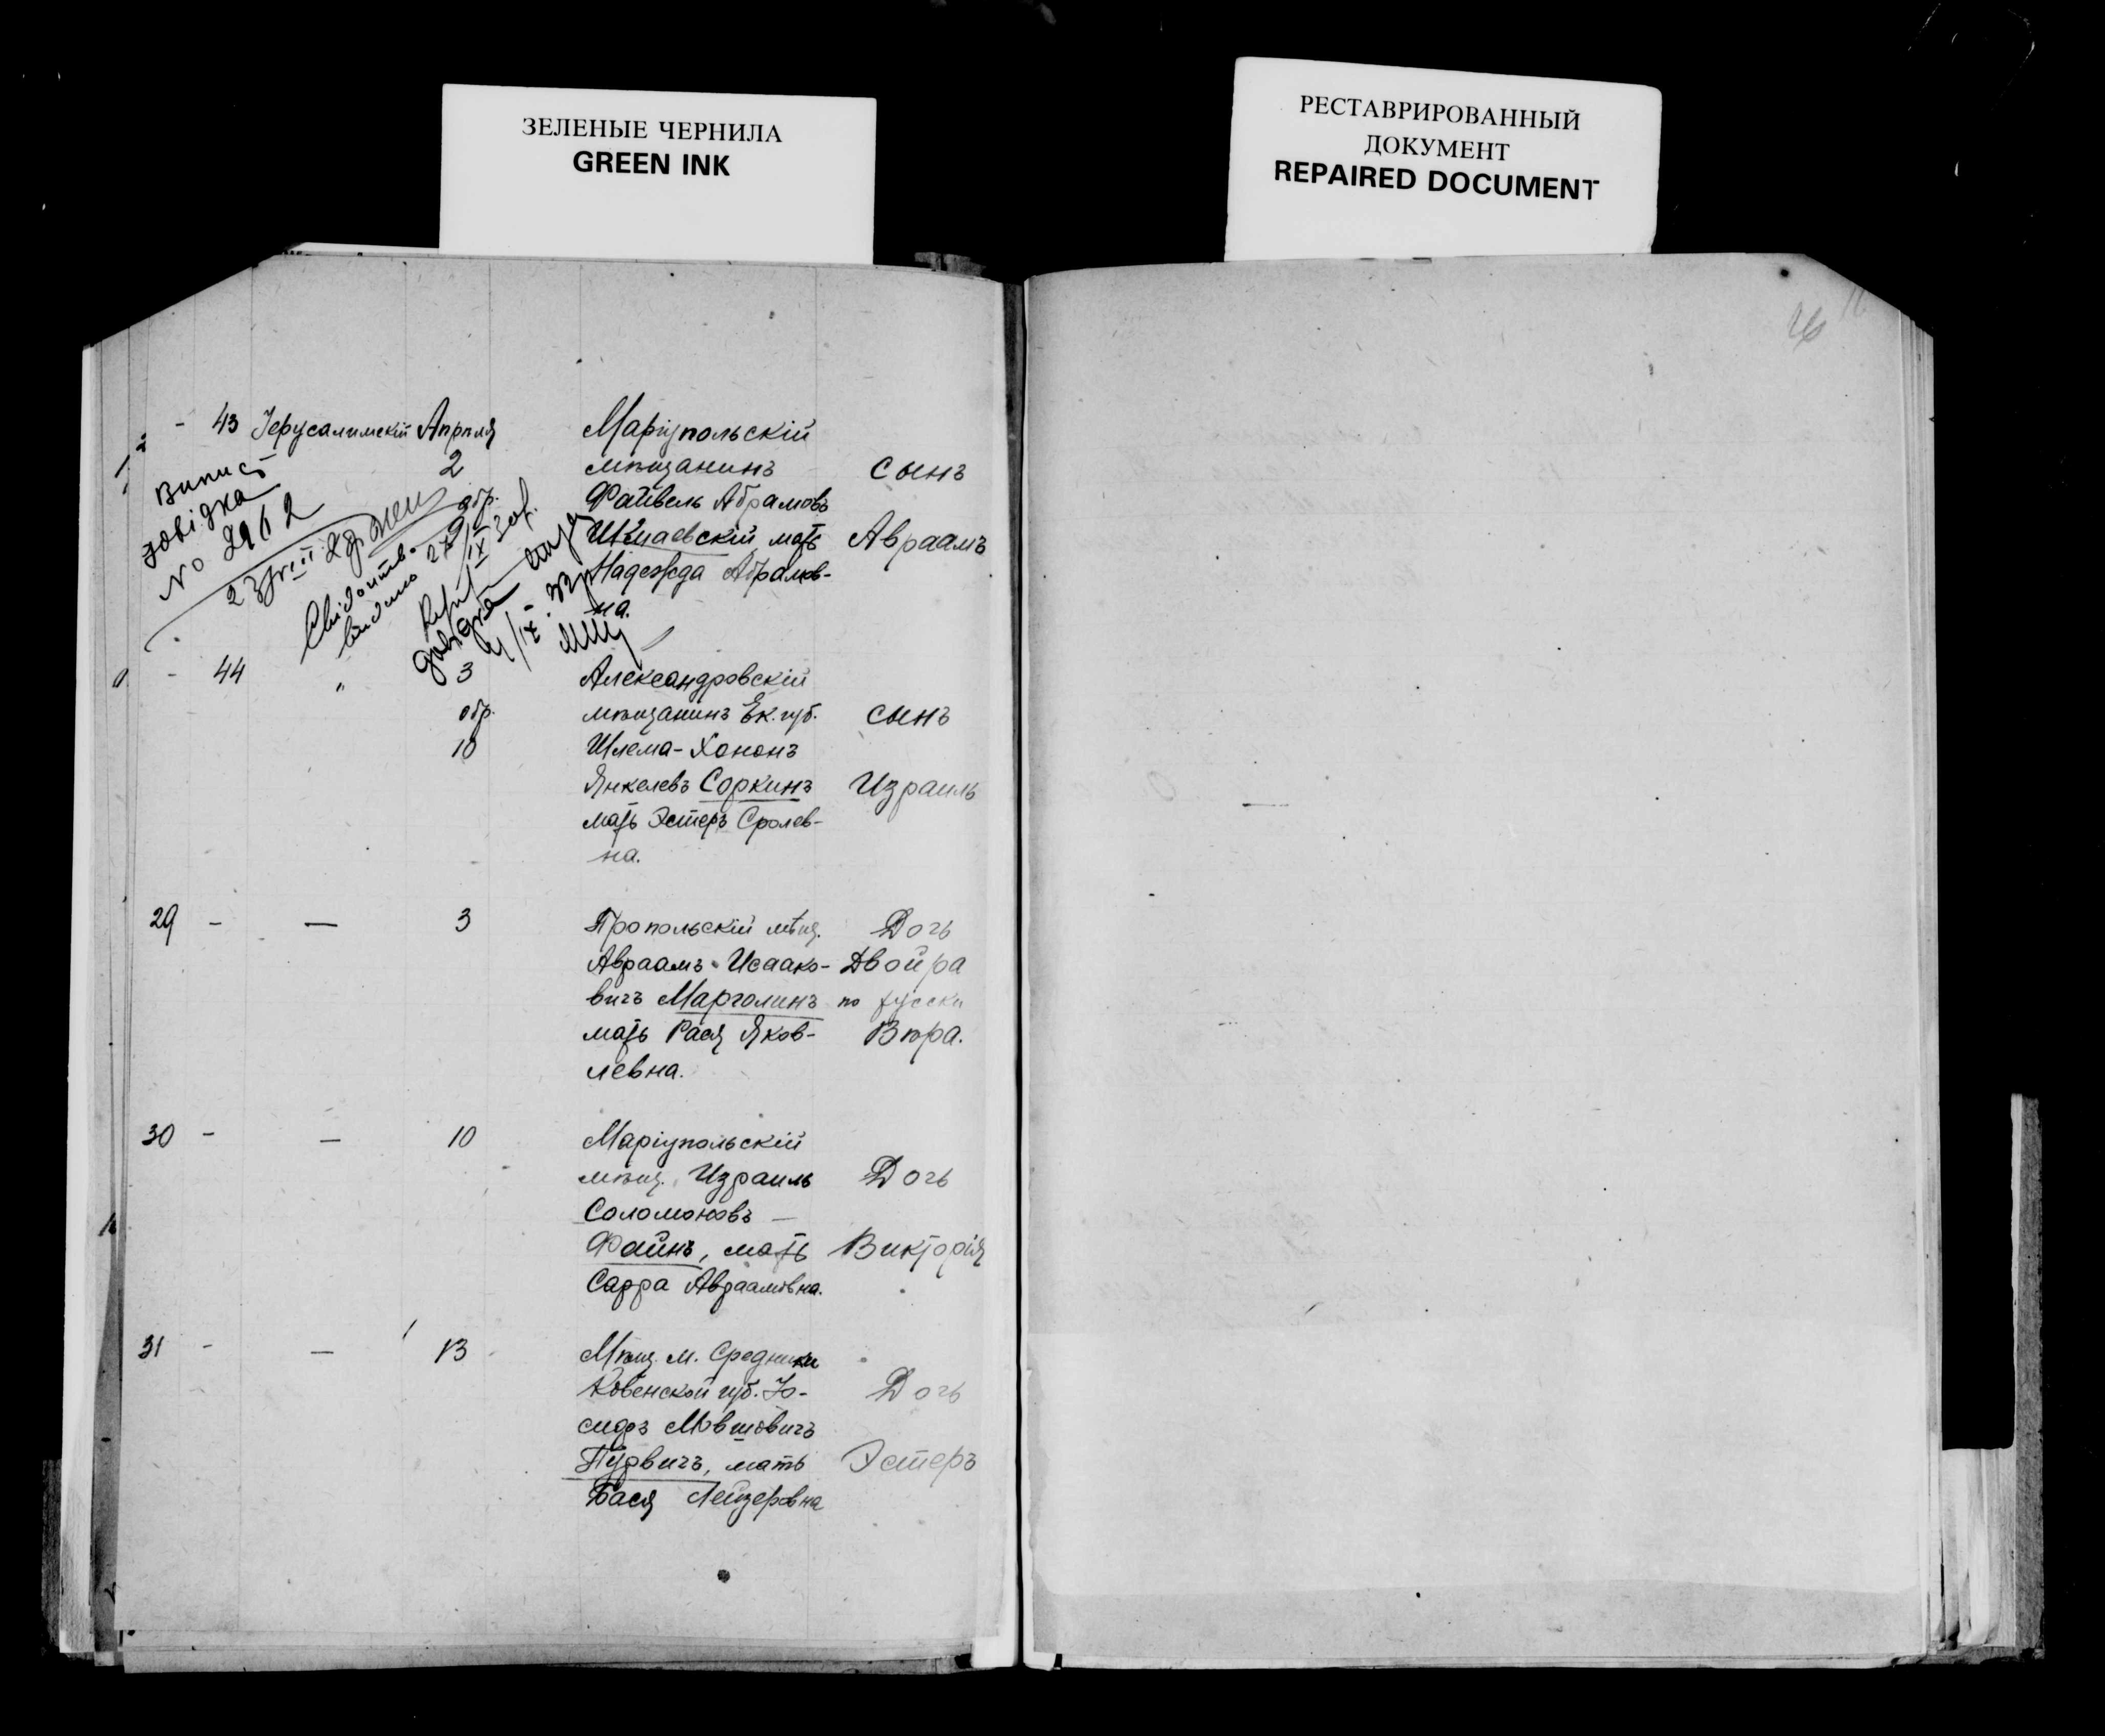 ЗЕЛЕНЫЕ ЧЕРНИЛА
GREEN INK
РЕСТАВРИРОВАННЫЙ
ДОКУМЕНТ
REPAIRED DOCUMENT
- 43 Іерусалимскій Апрѣля
2
обр.
9
Маріупольскій
мѣщанинъ
Файвель Абрамовъ
мать
Надежда Абрамов-
на.
сынъ
Авраамъ
Випис
довідка
№ 2962
- 44 "
3
обр.
10
Александровскій
мѣщанинъ Ек. губ.
Шлема-Хононъ
Янкелевъ Соркинъ
мать Эстеръ Сролев-
на.
сынъ
Израиль
29 - — 3
Пропольскій мѣщ.
Авраамъ Исаако-
вичъ Марголинъ
мать Рася Яков-
левна.
Дочь
Двойра
по русски
Вѣра.
30 - — 10
Маріупольскій
мѣщ. Израиль
Соломоновъ —
Файнъ, мать
Сарра Авраамовна.
Дочь
Викторія
31 - — 13
Мѣщ. м. Средники
Ковенской губ. Іо-
сифъ Мовшовичъ
Гурвичъ, мать
Бася Лейзеровна
Дочь
Эстеръ